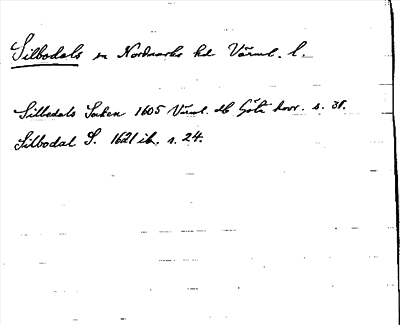 Silbodals sn Nordmarks hd Värml. l.
Silbedals Socken 1605 Värml. ä Göta hovr. s. 38.
Silbodal S. 1621 ib. s. 24.